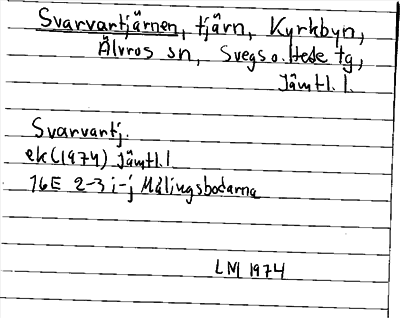 Svarvartjärnen, tjärn, Kyrkbyn,
Älvros sn, Svegs o. Hede tg,
Jämtl. l.
Svarvartj.
ek (1974) Jämtl. l
16E 2-3 i-j Målingsbodarna
LM 1974